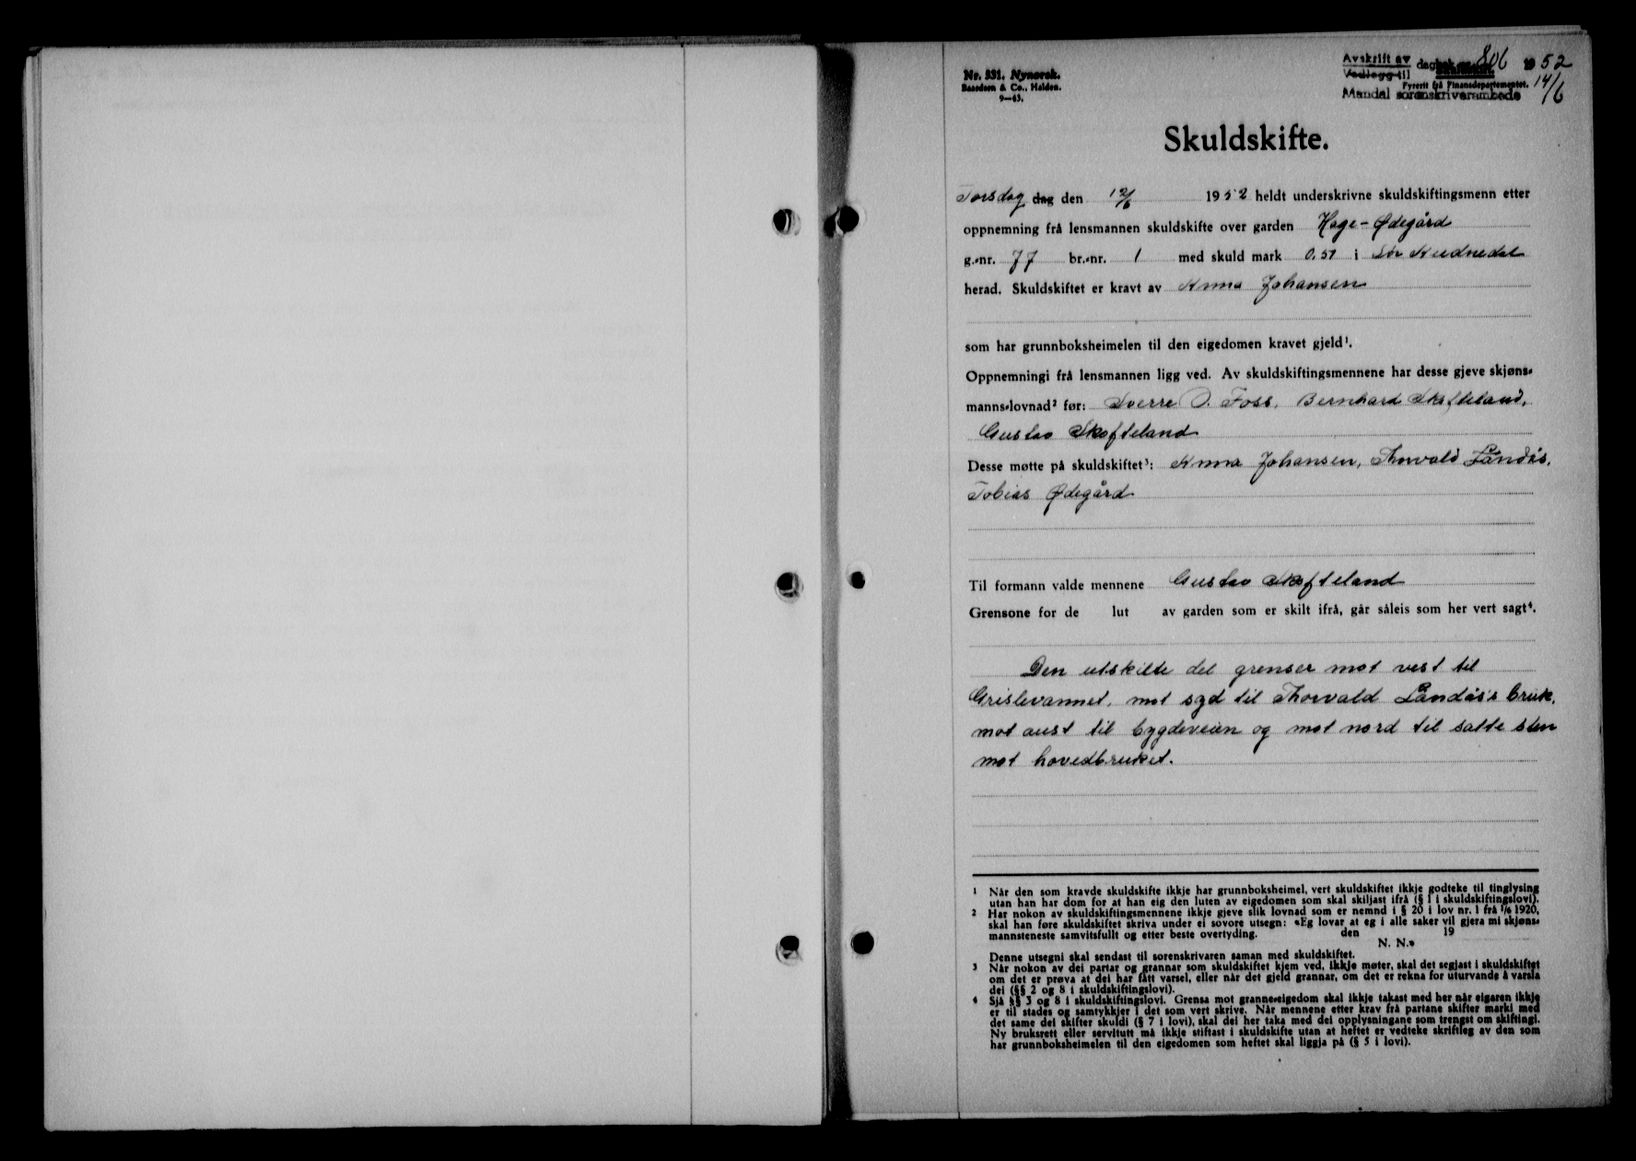 Nr. 331. Nynorsk.
Baasdom & Co., Halden.
9—43.
Avskrift av dagbok nr. 806 1952
Vedlegg til 14/6
Fyrerit frå Finansdepartementet.
Mandal sorenskriverambede
Skuldskifte.
Torsdag dag den 12/6 1952 heldt underskrivne skuldskiftingsmenn etter
oppnemning frå lensmannen skuldskifte over garden Hage-Ødegård
g.-nr. 77 br.-nr. 1 med skuld mark 0,51 i Sør Audnedal
herad. Skuldskiftet er kravt av Anna Johansen
som har grunnboksheimelen til den eigedomen kravet gjeld¹.
Oppnemningi frå lensmannen ligg ved. Av skuldskiftingsmennene har desse gjeve skjøns-
manns-lovnad² før: Sverre O. Foss, Bernhard Skofteland,
Gustav Skofteland
Desse møtte på skuldskiftet³: Anna Johansen, Thorvald Landås,
Tobias Ødegård
Til formann valde mennene Gustav Skofteland
Grensone for de lut av garden som er skilt ifrå, går såleis som her vert sagt⁴.
Den utskilte del grenser mot vest til
Grislevannet, mot syd til Thorvald Landås's bruk,
mot aust til bygdeveien og mot nord til satte sten
mot hovedbruket.
1 Når den som kravde skuldskifte ikkje har grunnboksheimel, vert skuldskiftet ikkje godteke til tinglysing
utan han har dom for at han eig den luten av eigedomen som skal skiljast ifrå (§ 1 i skuldskiftingslovi).
2 Har nokon av skuldskiftingsmennene ikkje gjeve slik lovnad som er nemnd i § 20 i lov nr. 1 frå 1/6 1920,
skal han føre skuldskiftet skriva under ei sovore utsegn: «Eg lovar at eg i alle saker vil gjera mi skjøns-
mannsteneste samvitsfullt og etter beste overtyding. den 19
N. N.»
Denne utsegni skal sendast til sorenskrivaren saman med skuldskiftet.
3 Når nokon av dei partar og grannar som skuldskiftet kjem ved, ikkje møter, skal det segjast i skuldskiftet
om det er prøva at dei har fått varsel, eller når det gjeld grannar, om det er rekna for uturvande å varsla
dei (§§ 2 og 8 i skuldskiftingslovi).
4 Sjå §§ 3 og 8 i skuldskiftingslovi. Grensa mot granne-eigedom skal ikkje takast med her når eigaren ikkje
er til stades og samtykkjer i det som vert skrive. Når mennene etter krav frå partane skifter marki med
det same dei skifter skuldi (§ 7 i lovi), skal dei her taka med dei opplysningane som trengst om skiftingi.
Ny bruksrett eller servitutt må ikkje stiftast i skuldskifte utan at heftet er vedteke skriftleg av den som
har grunnboksheimelen til den eigedomen som heftet skal liggja på (§ 5 i lovi).